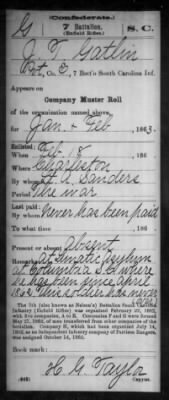 (Confederate.)
G 7 Battalion. S.C.
(Enfield Rifles).
J. T. Gatlin
Pvt, Co. E, 7 Batt'n South Carolina Inf.
Appears on
Company Muster Roll
of the organization named above,
for Jan & Feb, 1863.
Enlisted:
When Feb 18, 186
Where Charleston
By whom A. A. Sanders
Period the war
Last paid:
By whom Never has been paid
To what time , 186
Present or absent absent
Remarks: at Lunatic Asylum
at Columbia S.C. where
he has been since April
1862 This soldier has never
The 7th (also known as Nelson's) Battalion South Carolina
Infantry (Enfield Rifles) was organized February 22, 1862,
with five companies, A to E. Companies F and G were added
May , 1862, of men transferred from other companies of the
battalion. Company H, which had been organized July 14,
1862, as an independent company of Partisan Rangers,
was assigned October 14, 1862.
Book mark:
H. G. Taylor
(642) Copyist.